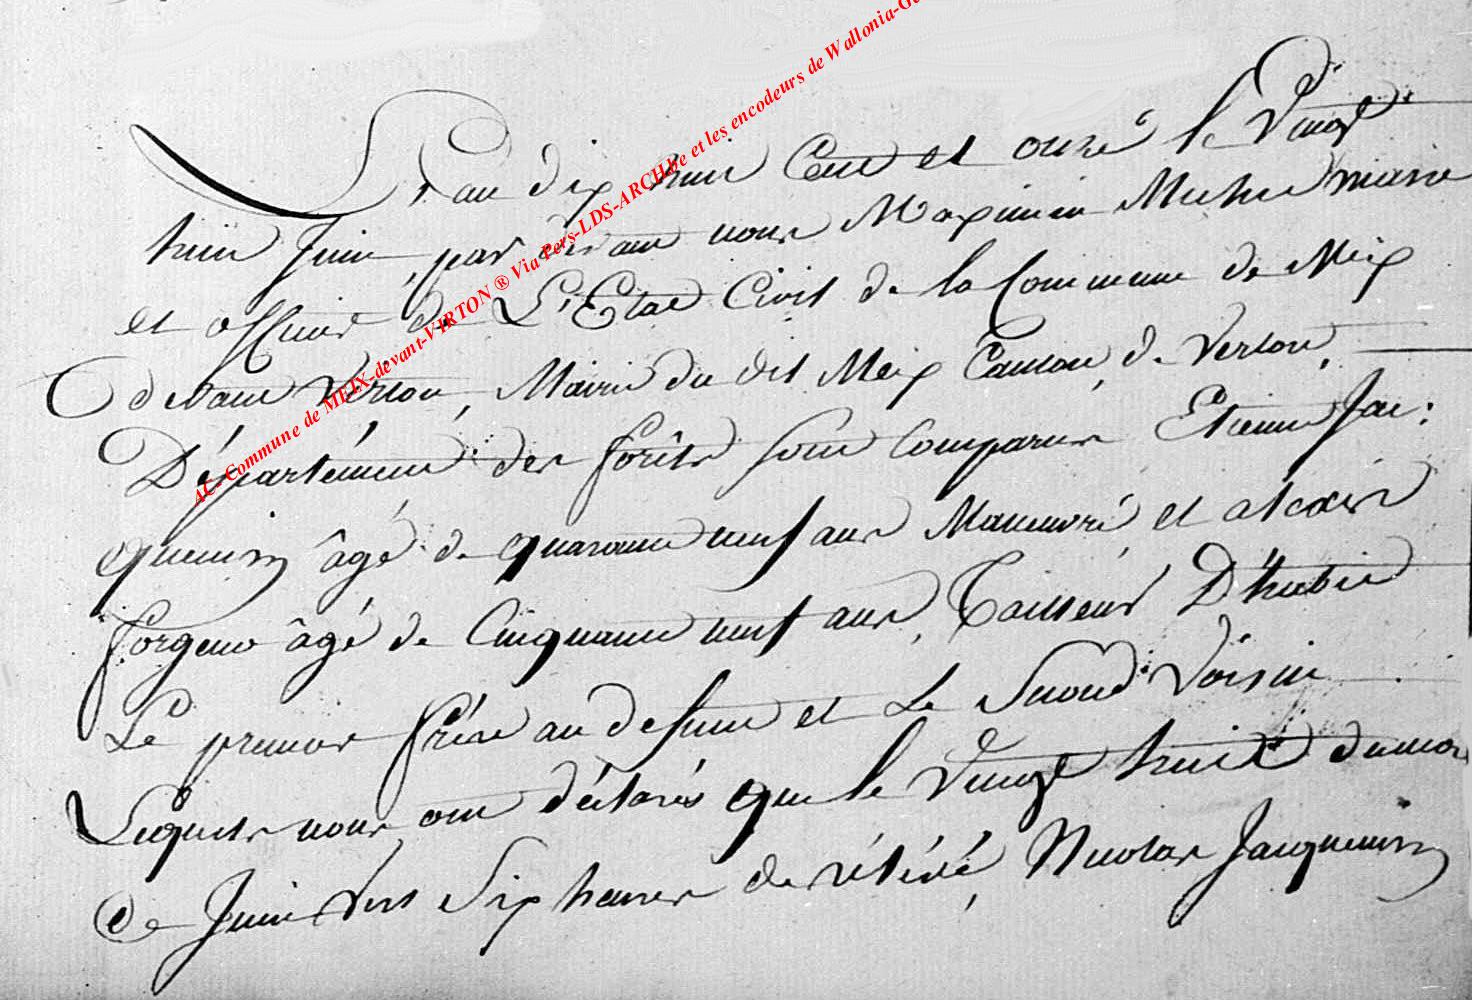 L'an dix huit Cent et onze le Vingt
huit Juin, par devant nous Maximin Michel maire
et officier de L'Etat Civil de la Commune de Meix
devant Virton, Mairie du dit Meix Canton de Verton,
Département des forêts sont Comparus Etienne Jac:
quemin âgé de quarante neuf ans Manuvré et
forgeur âgé de Cinquante neuf ans, Tailleur D'habit
Le premier frére au defunt et Le Second Voisin
Lequels nous ont déclarés que le Vingt huit du mois
de Juin vers Six heures de Nicolas Jacquemin
AC-Commune de MEIX-devant-VIRTON ® Via Pers-LDS-ARCH.be et les encodeurs de Wallonia-Ge